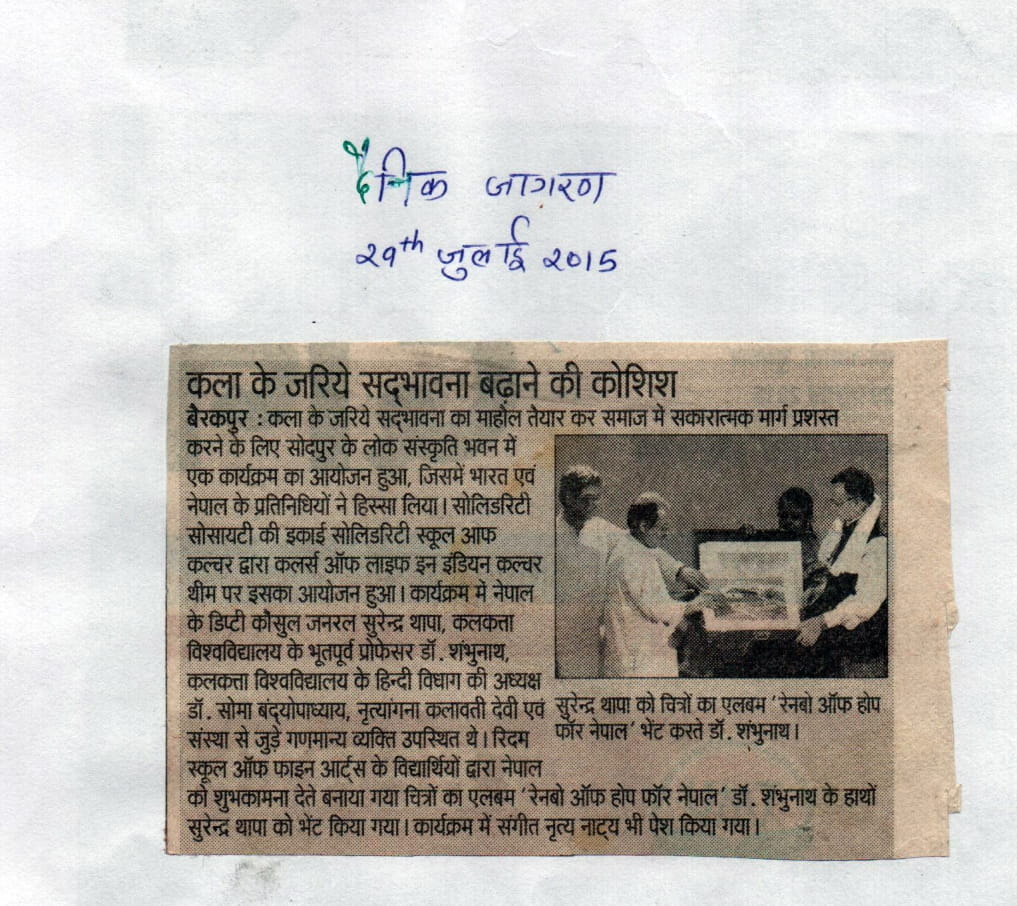 दैनिक जागरण
२9th जुलाई २०15
कला के जरिये सद्भावना बढ़ाने की कोशिश
बैरकपुर : कला के जरिये सद्भावना का माहौल तैयार कर समाज में सकारात्मक मार्ग प्रशस्त
करने के लिए सोदपुर के लोक संस्कृति भवन में
एक कार्यक्रम का आयोजन हुआ, जिसमें भारत एवं
नेपाल के प्रतिनिधियों ने हिस्सा लिया। सोलिडरिटी
सोसायटी की इकाई सोलिडरिटी स्कूल आफ
कल्चर द्वारा कलर्स ऑफ लाइफ इन इंडियन कल्चर
थीम पर इसका आयोजन हुआ। कार्यक्रम में नेपाल
के डिप्टी कौंसुल जनरल सुरेन्द्र थापा, कलकत्ता
विश्वविद्यालय के भूतपूर्व प्रोफेसर डॉ. शंभुनाथ,
कलकत्ता विश्वविद्यालय के हिन्दी विभाग की अध्यक्ष
डॉ. सोमा बंद्योपाध्याय, नृत्यांगना कलावती देवी एवं
संस्था से जुड़े गणमान्य व्यक्ति उपस्थित थे। रिदम
स्कूल ऑफ फाइन आर्ट्स के विद्यार्थियों द्वारा नेपाल
को शुभकामना देते बनाया गया चित्रों का एलबम ‘रेनबो ऑफ होप फॉर नेपाल’ डॉ. शंभुनाथ के हाथों
सुरेन्द्र थापा को भेंट किया गया। कार्यक्रम में संगीत नृत्य नाट्य भी पेश किया गया।
सुरेन्द्र थापा को चित्रों का एलबम ‘रेनबो ऑफ होप
फॉर नेपाल’ भेंट करते डॉ. शंभुनाथ।